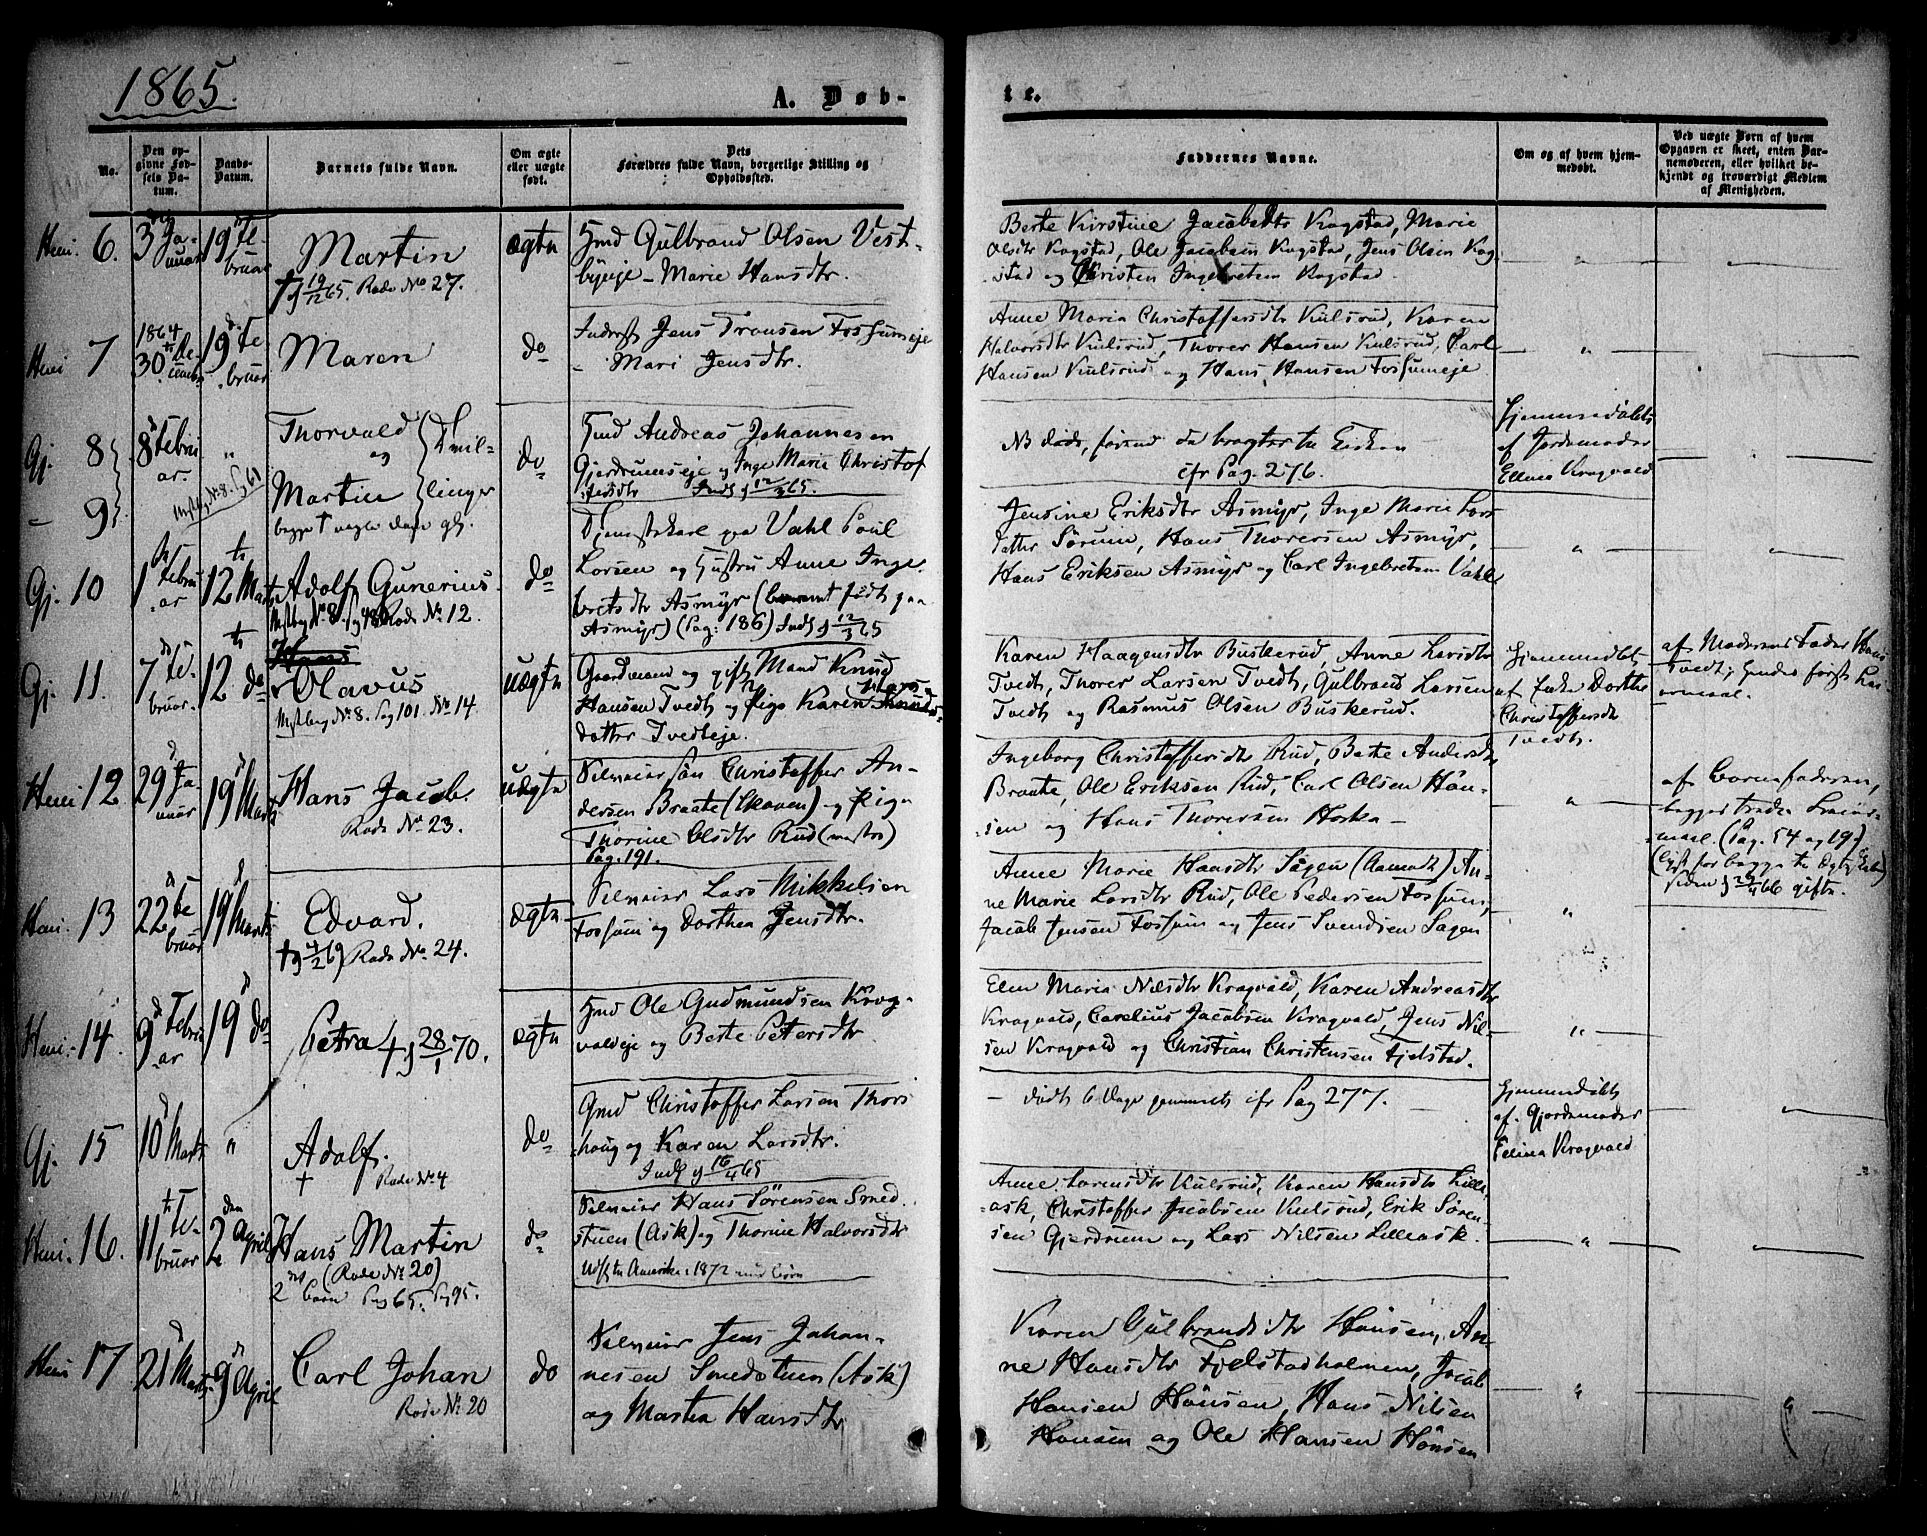 1865.
A. Døb-
te.
No.
Den op-
givne Fød-
sels Da-
tum.
Daabs-
Datum.
Barnets fulde Navn.
Om ægte
eller uægte
født.
Dets
Forældres fulde Navn, borgerlige Stilling og
Opholdssted.
Faddernes Navne.
Om og af hvem hjem-
medøbt.
Ved uægte Børn af hvem
Opgaven er skeet, enten Bar-
nemoderen, eller hvilket be-
kjendt og troværdigt Medlem
af Menigheden.
Heni. 6.
3 Ja-
nuar
19 Fe-
bruar
Martin
† 19/12 65. Rode No 27.
ægte
Hmd Gulbrand Olsen Vest-
byeje - Marie Hansdtr.
Berte Kirstine Jacobsdtr Kogstad, Marie
Olsdtr Kogstad, Ole Jacobsen Kogstad, Jens Olsen Kog-
stad og Christen Ingebretsen Kogstad.
Heni 7
1864
30 De-
cemb.
19 Fe-
bruar
Maren
do
Inderst Jens Fransen Fossumeje
- Mari Jensdtr.
Anne Maria Christoffersdtr Kulsrud, Karen
Halvorsdtr Kulsrud, Thorer Hansen Kulsrud, Carl
Hansen Kulsrud og Hans Hansen Fossumeje
Gj. 8
- 9
8 Febru
ar.
Thorvald
og
Martin
Tvil-
linger
Mstbog No 8. Pg 61
begge † nogle dage gl.
do
Hmd Andreas Johannesen
Gjerdrumseje og Inge Marie Christof
fersdtr Inds 12/3 65.
NB døde, førend de bragtes til Kirken
cfr Pag. 276.
Hjemmedøbte
af Jordemoder
Ellina Kragvald
Gj. 10
1 Febru
ar
12 Marts
Adolf Gunerius.
Mstbog No 8. Pg 48. Rode No 12.
do
Tjenestekarl paa Vahl Poul
Larsen og Hustru Anne Inge-
bretsdtr Asmyr (født paa
Asmyr) (Pag: 186) Inds 12/3 65
Jensine Eriksdtr Asmyr, Inge Marie Lars
datter Sørum, Hans Thoresen Asmyr,
Hans Eriksen Asmyr og Carl Ingebretsen Vahl
Gj. 11.
7 Fe-
bruar.
12 do
Hans
Olavus
Mstbog No 8. Pag 101. No 14
uægte
Gaardmand og gift Mand Knud
Hansen Tvedt og Pige Karen Hans
datter Tvedteje.
Karen Haagensdtr Buskerud, Anne Larsdtr
Tvedt, Thorer Larsen Tvedt, Gulbrand Larsen
Tvedt og Rasmus Olsen Buskerud.
Hjemmedøbt
af Enke Dorthe
Christoffersdtr
Tvedt.
af Moderens Fader Hans
Tvedt; hendes første Lei-
ermaal.
Heni 12.
29 Ja-
nuar
19 Marts
Hans Jacob.
Rode No 23.
uægte
Selveiersøn Christoffer An-
dersen Braate (Skoven) og Pige
Thorine Olsdtr Rud
Pag. 191.
Ingeborg Christoffersdtr Rud, Berte Andersdtr
Braate, Ole Eriksen Rud, Carl Olsen Hön-
sen og Hans Thoresen Horka -
af Barnefaderen,
begges tredie Leier-
maal (Pag. 54 og 19)
siden 26/4 66 gifte.
Heni. 13
22 Fe-
bruar
19 Marts
Edvard.
† 4/2 69 Rode No. 24.
ægte
Selveier Lars Mikkelsen
Fossum og Dorthea Jensdtr.
Anne Marie Hansdtr Sagen (Aamodt) An-
ne Marie Larsdtr Rud, Ole Pedersen Fossum,
Jacob Jensen Fossum og Jens Svendsen Sagen
Heni. 14.
9 Febru
ar
19 do
Petra † 28/1 70.
ægte
Hmd Ole Gudmundsen Krog-
valdeje og Berte Petersdtr
Elen Maria Nilsdtr Kragvald, Karen Andreasdtr
Kragvald, Carelius Jacobsen Kragvald, Jens Nil-
sen Kragvald og Christian Christensen Fjelstad.
Gj. 15
10 Marts
Adolf.
† Rode No 4
do
Gmd Christoffer Larsen Thors
houg og Karen Larsdtr.
Inds 16/4 65
- Død 6 Dage gammelt cfr Pag 277.
Hjemmedøbt
af Gjordemoder
Ellina Kragvald
Heni. 16.
11 Fe-
bruar
2 den April
Hans Martin
(Rode No 20)
2 det barn Pag 65. Pg 95.
do
Selveier Hans Sørensen Smed
stuen (Ask) og Thorine Halvorsdtr
Udfl. til Amerika 1872 med børn
Anne Larensdtr Kulsrud, Karen Hansdtr Lille-
ask, Christoffer Jacobsen Kulsrud, Erik Søren-
sen Gjerdrum og Lars Nilsen Lilleask.
Heni 17
21 Marts
9 April
Carl Johan
Rode No 20
do
Selveier Jens Johan-
nesen Smedstuen (Ask)
og Martha Hansdtr
Karen Gulbrandsdtr Hönsen, An-
ne Hansdtr Fjelstadholmen, Jacob
Hansen Hönsen, Hans Nilsen
Hönsen og Ole Hansen Hönsen